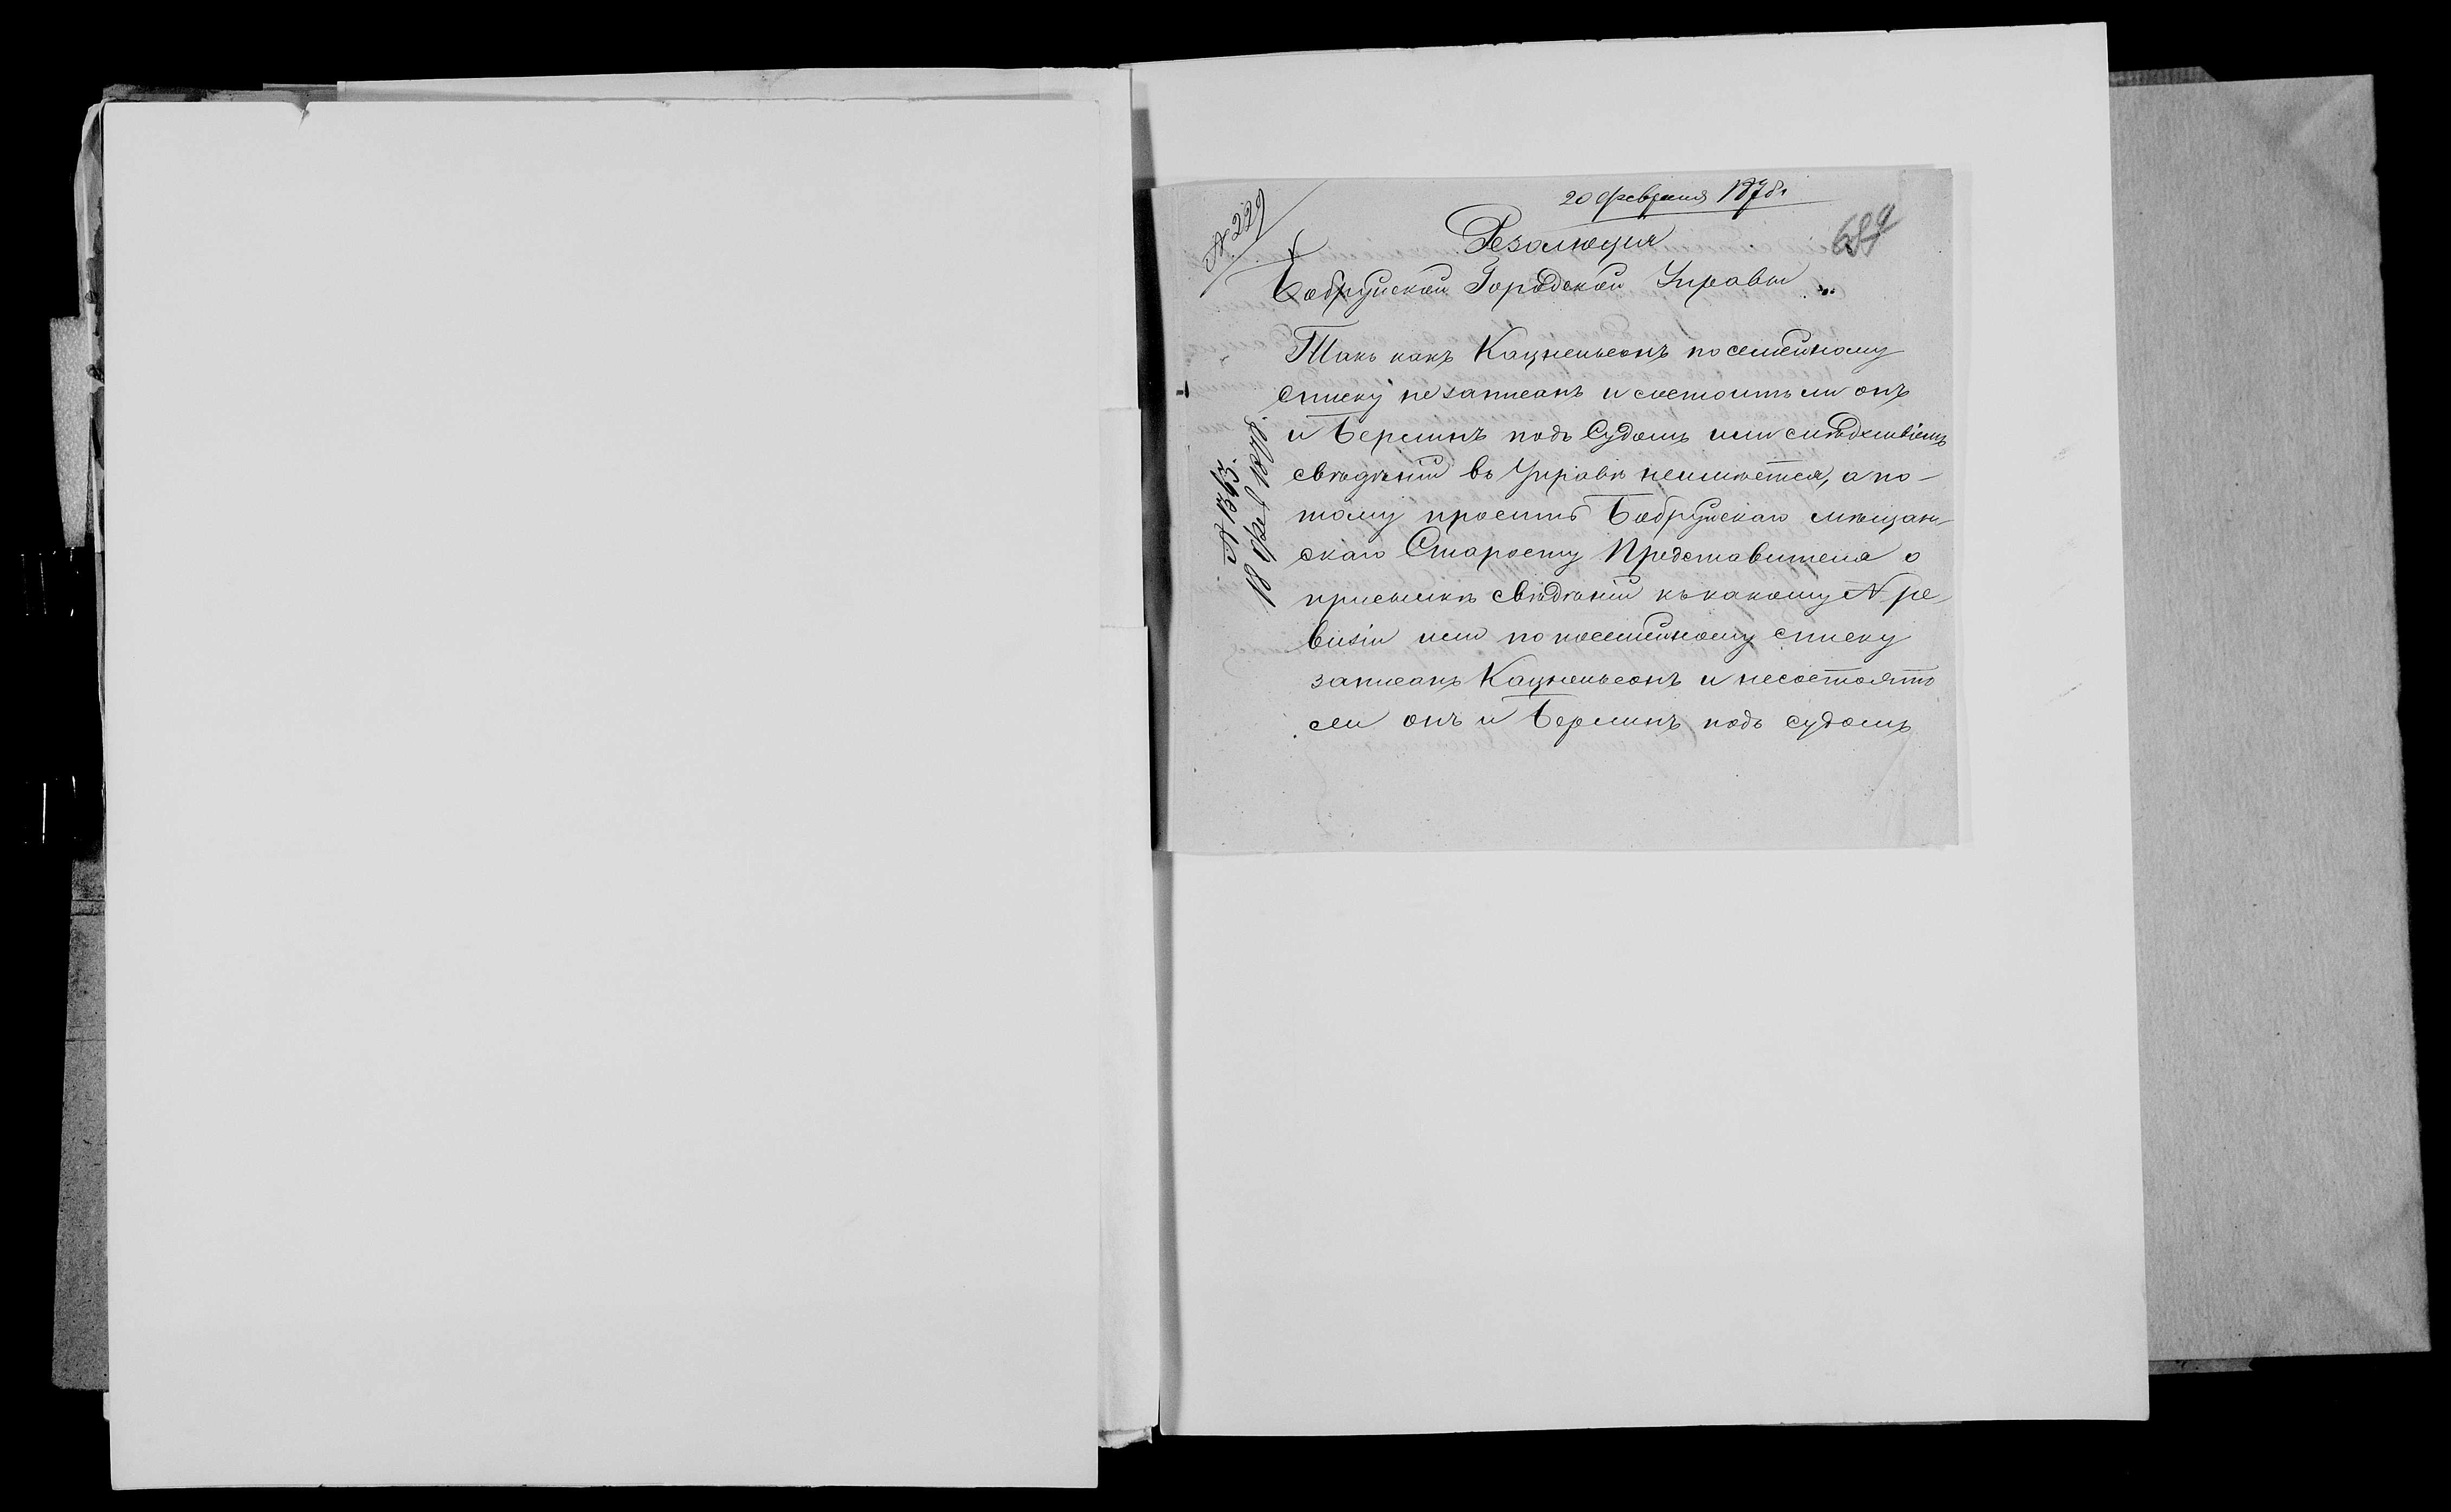 № 229
20 февраля 1878 г.
689
Резолюція
Бобруйской Городской Управы
Такъ какъ Кацнельсонъ по семейному
списку не записанъ и состоитъ ли онъ
и Берлинъ подъ Судомъ или слѣдствіемъ
свѣдѣній въ Управѣ неимѣется, а по-
тому проситъ Бобруйскаго мѣщан-
скаго Старосту Представителя о
присылкѣ свѣдѣній къ какому № ре-
визіи или по посемейному списку
записанъ Кацнельсонъ и несостоятъ
ли онъ и Берлинъ подъ судомъ
№ 1363.
18 фев 1878.